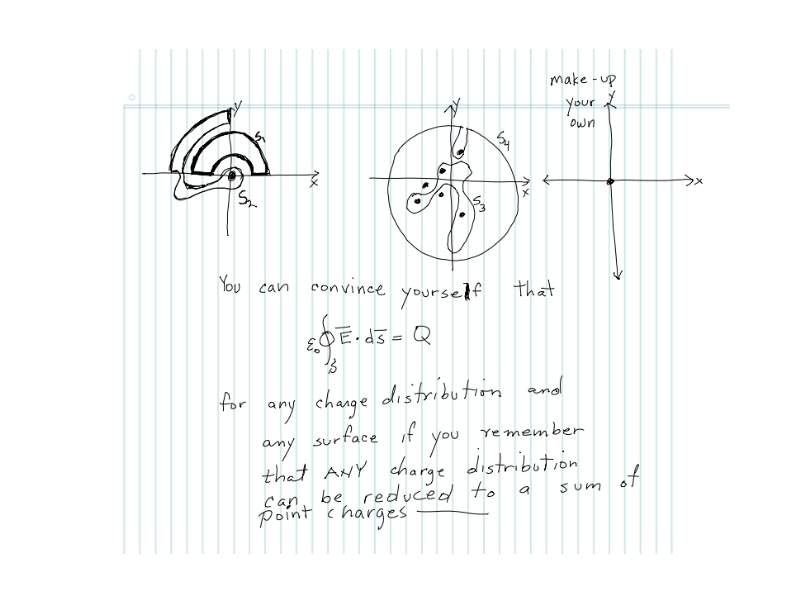 make-up
your
own
y
x
S₁
S₂
y
x
S₄
S₃
y
x
You can convince yourself that
ε₀ ∮ Ē · ds̄ = Q
S
for any charge distribution and
any surface if you remember
that ANY charge distribution
can be reduced to a sum of
point charges